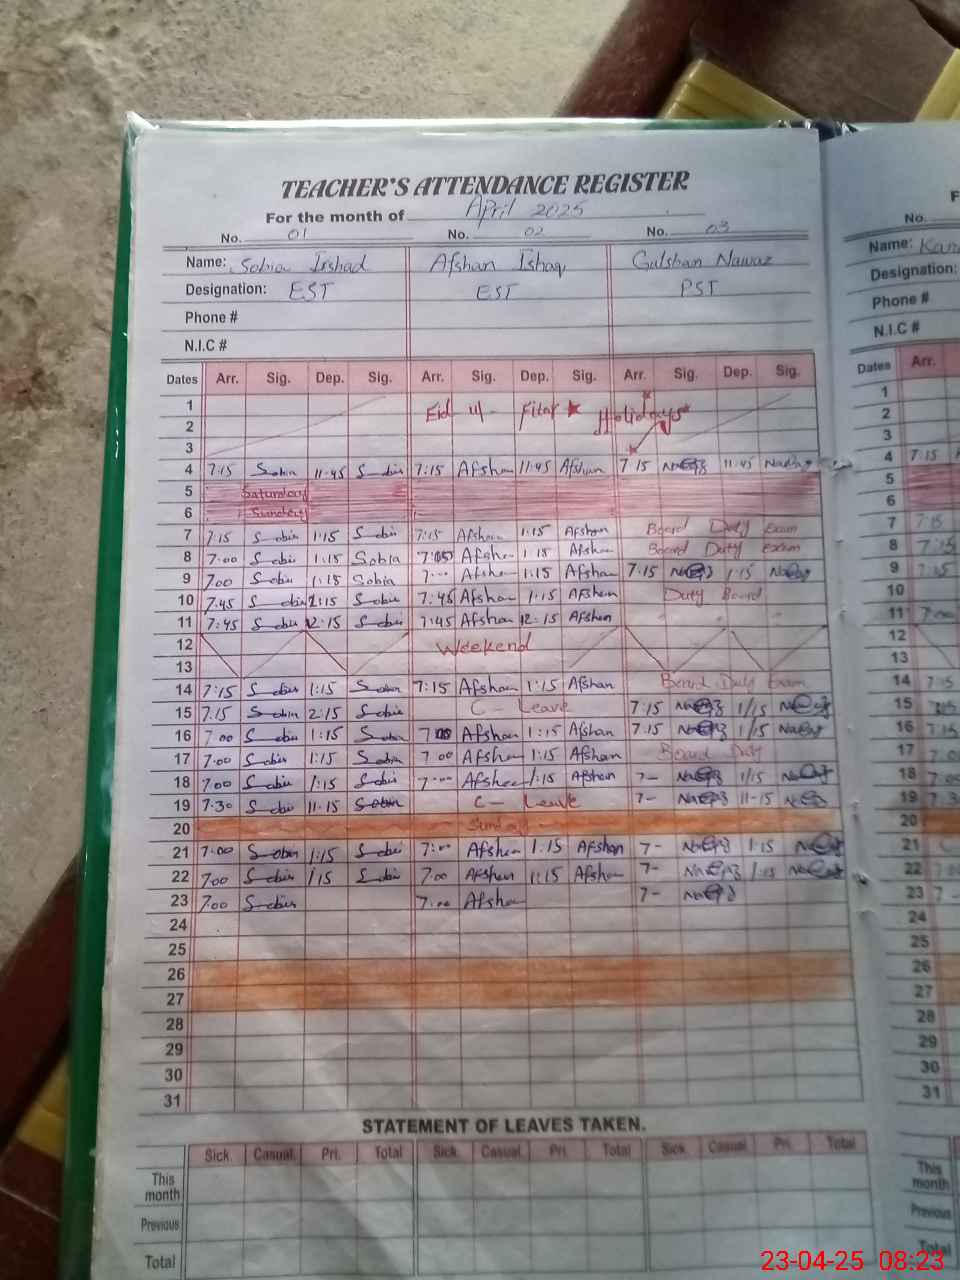 TEACHER'S ATTENDANCE REGISTER
For the month of April 2025
No. 01 No. 02 No. 03
Name: Sobia Irshad Afshan Ishaq Gulshan Nawaz
Designation: EST EST PST
Phone #
N.I.C #
Dates Arr. Sig. Dep. Sig. Arr. Sig. Dep. Sig. Arr. Sig. Dep. Sig.
1 Eid ul- Fitar Holidays
2
3
4 7:15 Sobia 11:45 Sobia 7:15 Afshan 11:45 Afshan 7:15 11:45
5 Saturday
6 Sunday
7 7:15 Sobia 1:15 Sobia 7:15 Afshan 1:15 Afshan Board Duty Exam
8 7:00 Sobia 1:15 Sobia Afshan 1:15 Afshan Board Duty Exam
9 7:00 Sobia 1:15 Sobia 7:00 Afshan 1:15 Afshan 7:15 1:15
10 7:45 Sobia 1:15 Sobia 7:45 Afshan 1:15 Afshan Duty Board
11 7:45 Sobia 12:15 Sobia 7:45 Afshan 12:15 Afshan
12 Weekend
13
14 7:15 Sobia 1:15 Sobia 7:15 Afshan 1:15 Afshan Board Duty Exam
15 7:15 Sobia 2:15 Sobia C- Leave 7:15 1/15
16 7:00 Sobia 1:15 Sobia Afshan 1:15 Afshan 7:15 1/15
17 7:00 Sobia 1:15 Sobia 7:00 Afshan 1:15 Afshan Board Duty
18 7:00 Sobia 1:15 Sobia 7:00 Afshan 1:15 Afshan 7- 1/15
19 7:30 Sobia 11-15 Sobia C- Leave 7- 11-15
20 Sunday
21 7:00 Sobia 1:15 Sobia 7:00 Afshan 1:15 Afshan 7- 1:15
22 7:00 Sobia 1:15 Sobia 7:00 Afshan 1:15 Afshan 7- 1:15
23 7:00 Sobia 7:00 Afshan 7-
24
25
26
27
28
29
30
31
STATEMENT OF LEAVES TAKEN.
Sick Casual Pri. Total Sick Casual Pri. Total Sick Casual Pri. Total
This month
Previous
Total
No.
Name:
Designation:
Phone #
N.I.C #
Dates Arr.
1
2
3
4 7:15
5
6
7 7:15
8 7:15
9 7:15
10
11 7:00
12
13
14 7:15
15
16 7:15
17 7:00
18
19
20
21
22
23
24
25
26
27
28
29
30
31
Sick
This month
Previous
Total
23-04-25 08:23